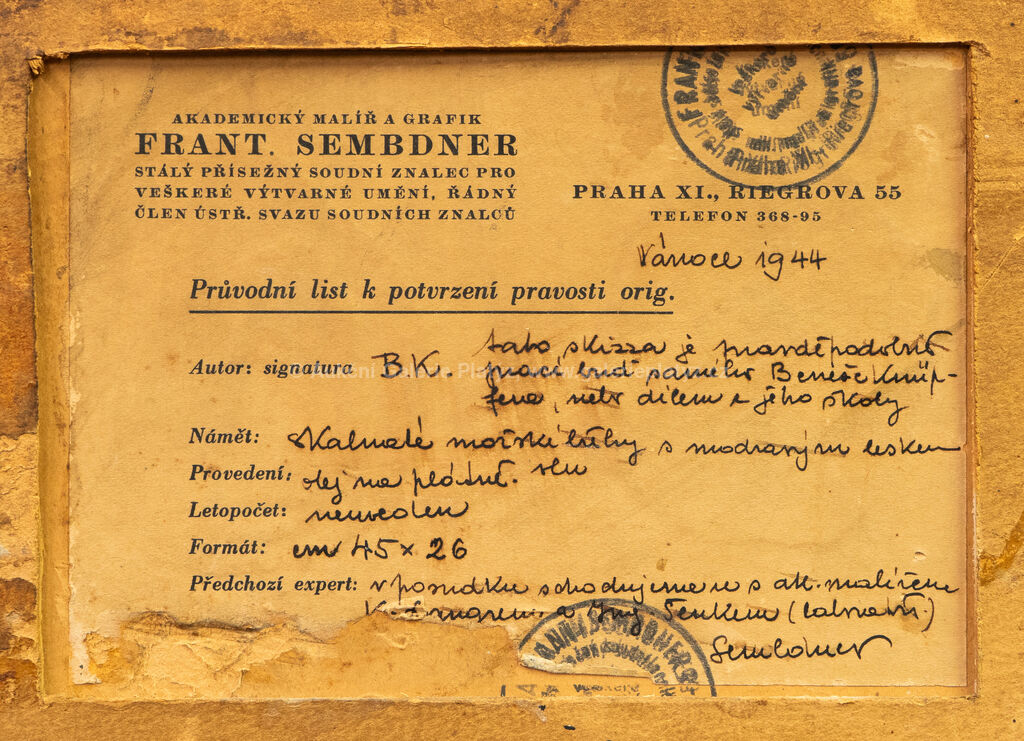 AKADEMICKÝ MALÍŘ A GRAFIK
FRANT. SEMBDNER
STÁLÝ PŘÍSEŽNÝ SOUDNÍ ZNALEC PRO
VEŠKERÉ VÝTVARNÉ UMĚNÍ, ŘÁDNÝ
ČLEN ÚSTŘ. SVAZU SOUDNÍCH ZNALCŮ
PRAHA XI., RIEGROVA 55
TELEFON 368-95
Vánoce 1944
Průvodní list k potvrzení pravosti orig.
tato skizza je pravděpodobně
Autor: signatura B.K. prací buď samého Beneše Knüp-
fera, neb dílem z jeho školy
Námět: skalnaté mořské břehy s modravým leskem
Provedení: olej na plátně. vln
Letopočet: neuveden
Formát: cm 45 x 26
Předchozí expert: v posudku schodujeme se s ak. malířem
a Ing. Tenkem
Sembdner